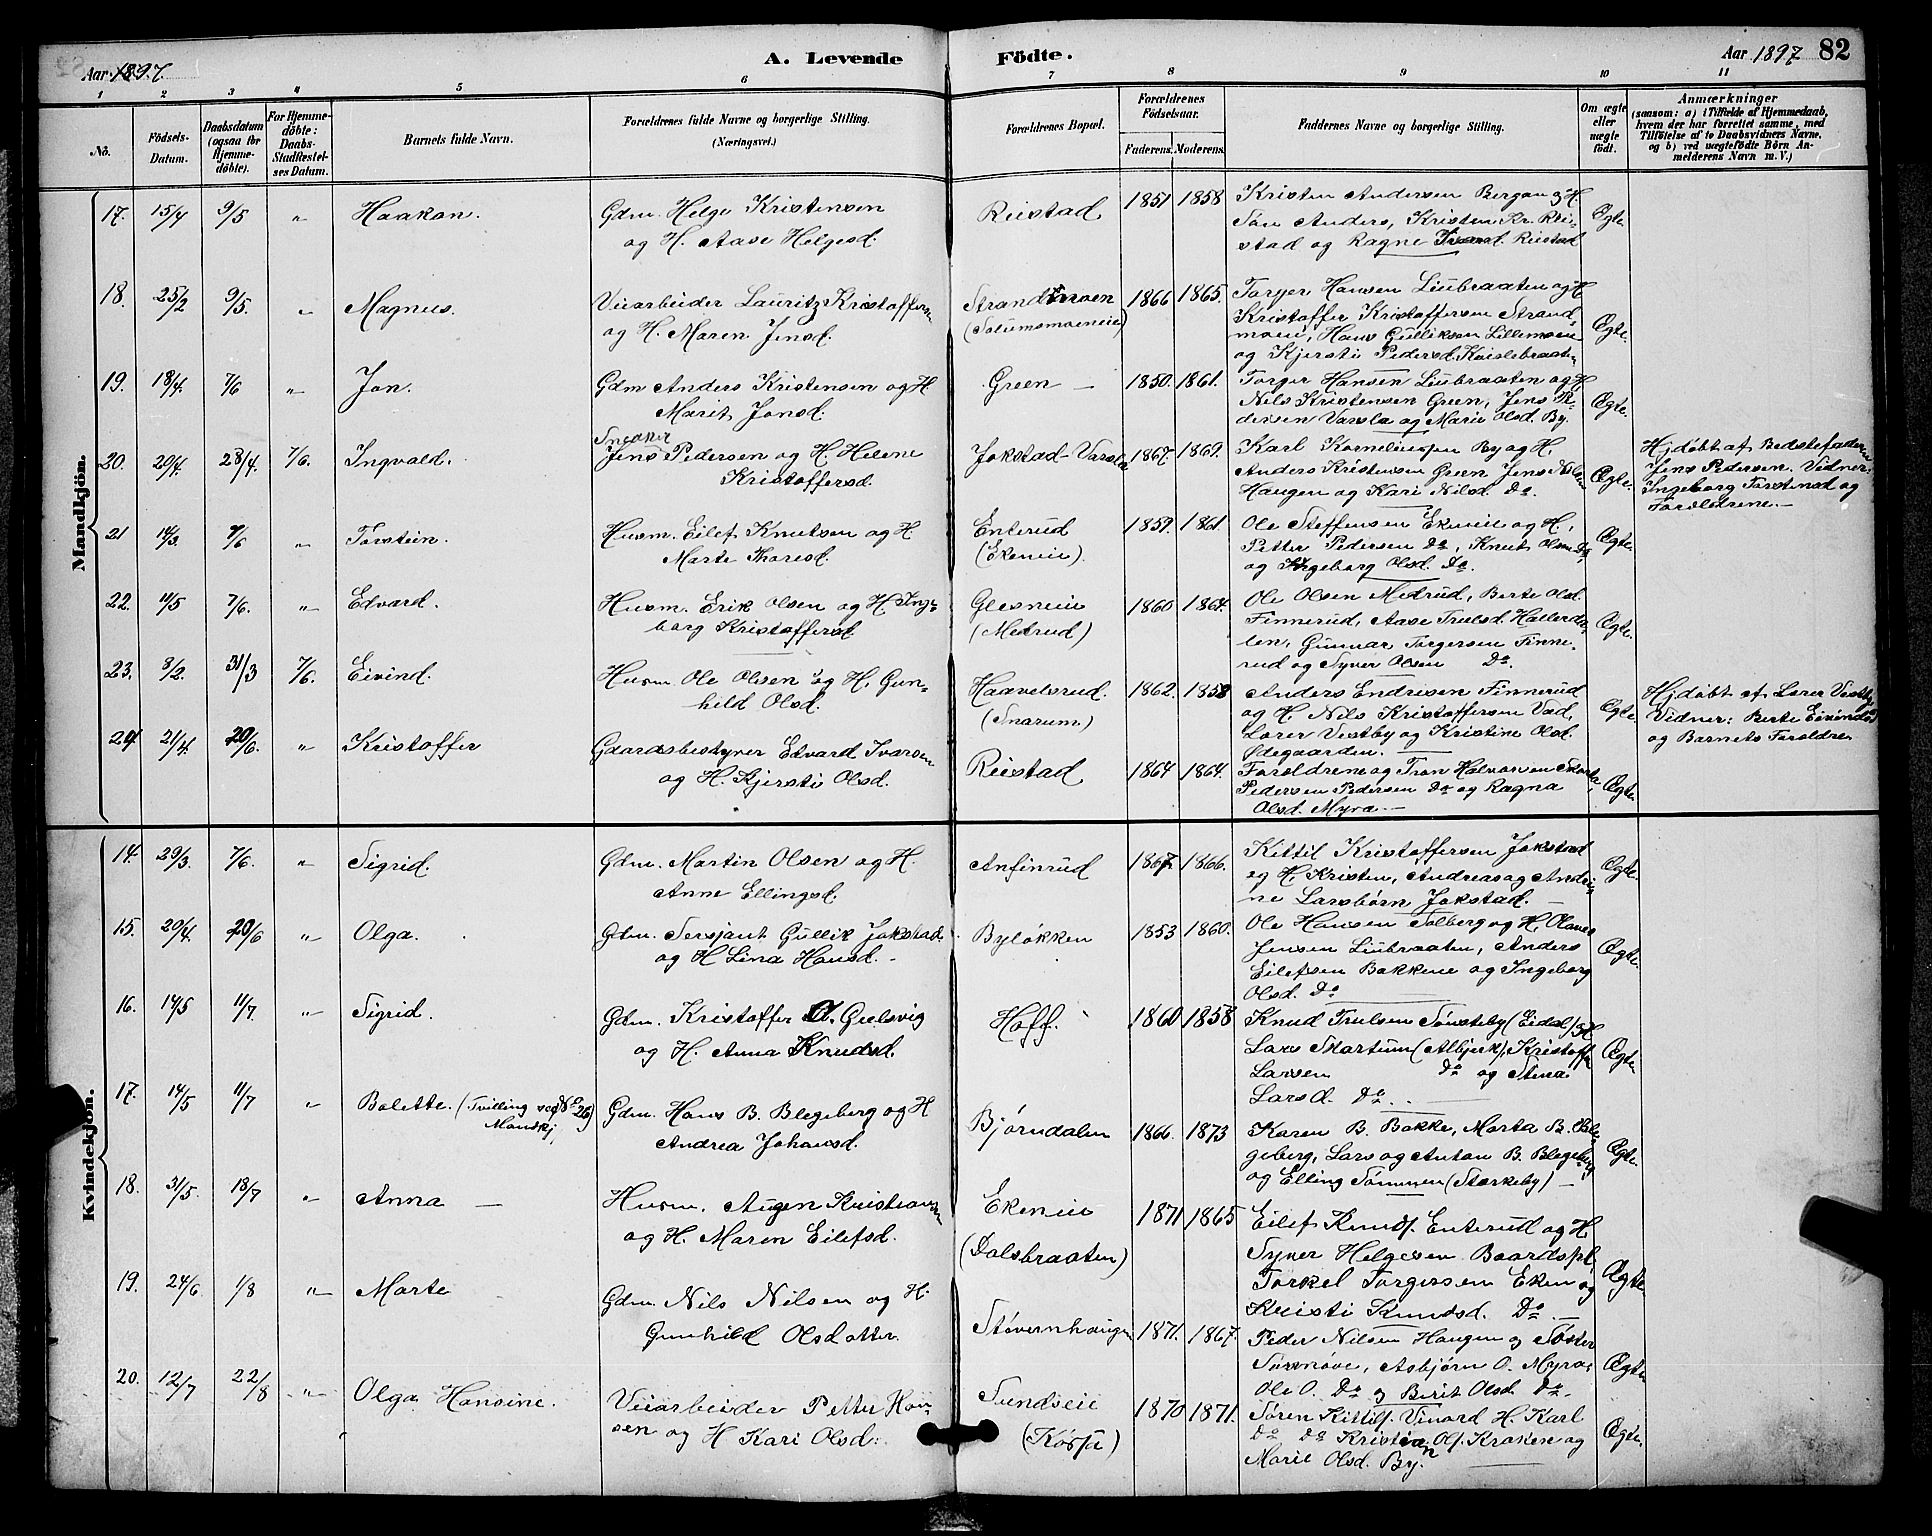 Aar 1897.
A. Levende Födte.
Aar 1897
82
1 2 3 4 5 6 7 8 9 10 11
No.
Födsels-Datum.
Daabsdatum (ogsaa for Hjemmedöbte).
For Hjemmedöbte: Daabs-Stadfæstelses Datum.
Barnets fulde Navn.
Forældrenes fulde Navne og borgerlige Stilling.
(Næringsvei.)
Forældrenes Bopæl.
Forældrenes Födselsaar.
Faderens. Moderens.
Faddernes Navne og borgerlige Stilling.
Om ægte eller uægte födt.
Anmærkninger
(saasom: a) i Tilfælde af Hjemmedaab, hvem der har forrettet samme, med Tilföielse af to Daabsvidners Navne, og b) ved uægtefödte Börn Anmelderens Navn m. V.)
Mandkjön.
17. 15/4 9/5 " Haakon. Gdm. Helge Kristensen
og H. Aase Helgesd.
Reistad 1851 1858 Kristen Andersen Bergan og H.
Søn Anders, Kristen Kr. Rei-
stad og Ragne Iversd. Reistad
Ægte.
18. 25/2 9/5. " Magnus. Veiarbeider Lauritz Kristoffersen
og H. Maren Jensd.
Strandmoen
(Solumsmoeneie)
1866 1865. Torger Hansen Liubraaten og H.
Kristoffer Kristoffersen Strand-
moen, Hans Gulliksen Lillemoen
og Kjersti Pedersd. Kaislebraaten
Ægte.
19. 18/4. 7/6 " Jon. Gdm Anders Kristensen og H.
Marit Jonsd.
Green 1850. 1861. Torger Hansen Liubraaten og H.
Nils Kristensen Green, Jens Pe-
dersen Varsla og Marie Olsd. By.
Ægte.
20. 20/4. 28/4. 7/6. Ingvald. Snedker
Jens Pedersen og H. Helene
Kristoffersd.
Jokstad-Varsla 1867. 1869. Karl Korneliussen By og H.
Anders Kristensen Green, Jens Nilsen
Haugen og Kari Nilsd. Do.
Ægte.
Hjdøbt af Bedstefaderen
Jens Pedersen. Vidner:
Ingeborg Torstensd og
Forældrene.
21 14/3. 7/6 " Torstein. Husm. Eilef Knutsen og H.
Marte Thoresd.
Enterud
(Ekeneie).
1859. 1861. Ole Steffensen Ekeneie og H.,
Petter Pedersen Do, Knut Olsen Do,
og Ingeborg Olsd. Do.
Ægte.
22. 11/5 7/6. " Edvard. Husm. Erik Olsen og H. Inge-
borg Kristoffersd.
Glesneie
(Medrud)
1860 1864. Ole Olsen Medrud, Berte Olsd.
Finnerud, Aase Trulsd. Hallerda-
len, Gunnar Torgersen Finne-
rud og Syver Olsen Do.
Ægte.
23. 8/2. 31/3 7/6. Eivind. Husm. Ole Olsen og H. Gun-
hild Olsd.
Haavelsrud.
(Snarum)
1862. 1858 Anders Endresen Finnerud
og H. Nils Kristoffersen Vad,
Lorer Vestby og Kristine Olsd.
Ødegaarden.
Ægte
Hjdøbt af Lærer Vestby
Vidner: Berte Eivindsd
og Barnets Forældre
24 21/4. 20/6. " Kristoffer Gaardsbestyrer Edvard Ivarsen
og H. Kjersti Olsd.
Reistad 1864 1864. Forældrene og Tron Halvorsen Skarta,
Pedersen Pedersen Do og Ragna
Olsd. Myra.
Ægte
Kvindekjön.
14. 29/3. 7/6. " Sigrid. Gdm. Martin Olsen og H.
Anne Ellingsd.
Anfinrud 1867 1866. Kittil Kristoffersen Jokstad
og H. Kristen, Andreas og Andri-
ne Larsbørn Jokstad.
Ægte.
15. 20/4. 20/6 " Olga. Gdm. Sersjant Gullik Jokstad.
og H. Lina Hansd.
Byløkken 1853 1860. Ole Hansen Solberg og H. Olaves
Jensen Liubraaten, Anders
Eilefsen Bakkeeie og Ingeborg
Olsd. Do
Ægte.
16. 14/5 11/7 " Sigrid. Gdm. Kristoffer O. Gulsvig
og H. Anna Knudsd.
Hoff. 1860 1858 Knud Trulsen Sønsteby (Eidal) og H
Lars Skartum (Albjerk), Kristoffer
Larsen Do og Stina
Larsd. Do.
Ægte
17. 14/5 11/7 " Bolette. (Tvilling ved No 26)
Mandkj.
Gdm. Hans B. Blegeberg og H
Andrea Johansd.
Bjørndalen 1866. 1873 Karen B. Bakke, Marta B. Ble-
geberg, Lars og Anton B. Blegeberg
og Elling Sømmen (Stærkeby)
Ægte.
18. 31/5. 18/7 " Anna Husm. Augen Kristiansen
og H. Maren Eilefsd.
Ekeneie
(Dalsbraaten)
1871 1865 Eilef Knuds. Enterud og H.
Syver Helgesen Baardspl.
Torkel Torgersen Eken og
Kristi Knudsd. Do
Ægte
19. 24/6 1/8 " Marte Gdm. Nils Nilsen og H.
Gunhild Olsdatter.
Støvernhaugen 1871. 1867. Peder Nilsen Haugen og Søster
Sørnøve, Asbjørn O. Myra,
Ole O. Do og Berit Olsd. Do.
Ægte
20. 12/7 22/8 " Olga Hansine. Veiarbeider Petter Han-
sen og H Kari Olsd.
Sundseie
(Korsja)
1870 1871. Søren Kittils. Vinord H. Karl
Do Do Kristian Ols. Kraken og
Marie Olsd. By.
Ægte.